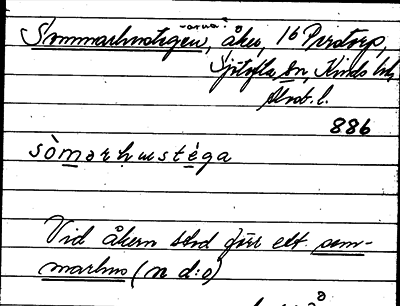 Sommarhustegen, åker, 16 Perstorp,
Sjötofta sn, Kinds hd,
Älvsb. l.
886
sòmarhustéga
Vid åkern stod förr ett som-
marhus (n d:o)